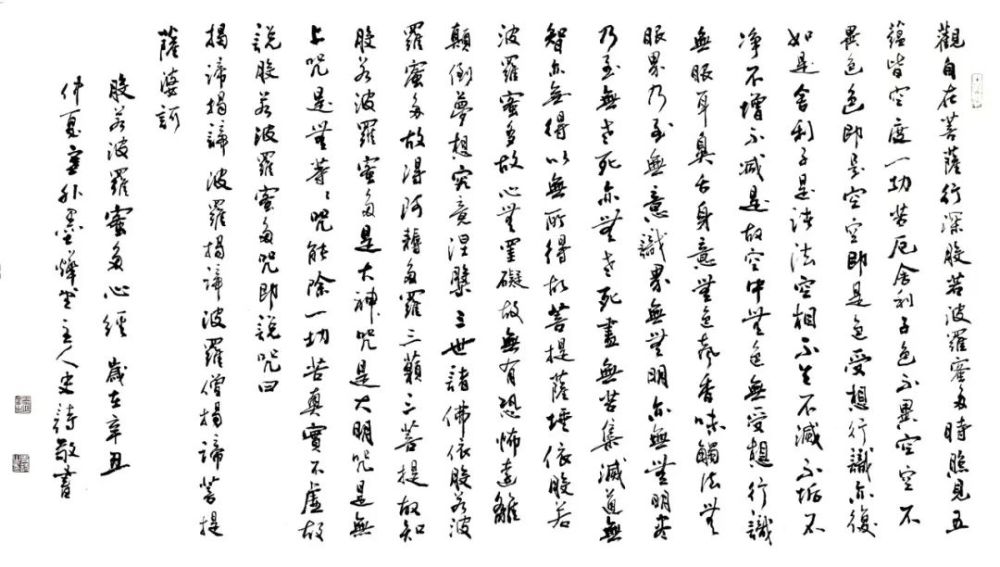 觀自在菩薩行深般若波羅蜜多時照見五
蘊皆空度一切苦厄舍利子色不異空空不
異色色即是空空即是色受想行識亦復
如是舍利子是諸法空相不生不滅不垢不
净不增不減是故空中無色無受想行識
無眼耳鼻舌身意無色聲香味觸法無
眼界乃至無意識界無無明亦無無明盡
乃至無老死亦無老死盡無苦集滅道無
智亦無得以無所得故菩提薩埵依般若
波羅蜜多故心無罣礙故無有恐怖遠離
顛倒夢想究竟涅槃三世諸佛依般若波
羅蜜多故得阿耨多羅三藐三菩提故知
般若波羅蜜多是大神咒是大明咒是無
上咒是無等〻咒能除一切苦真實不虛故
說般若波羅蜜多咒即說咒曰
揭諦揭諦波羅揭諦波羅僧揭諦菩提
薩婆訶
般若波羅蜜多心經 歲在辛丑
仲夏塞外墨燁堂主人史詩敬書